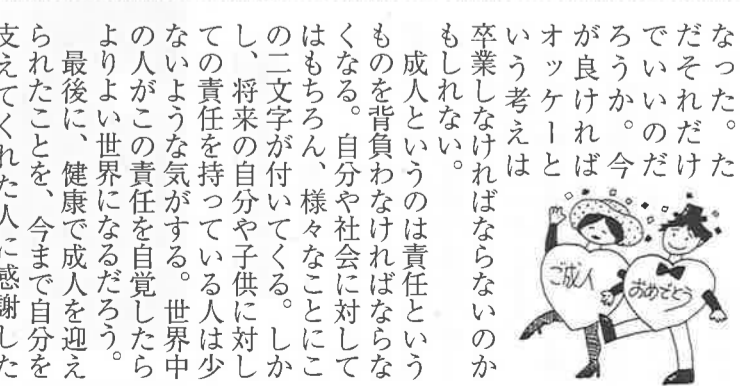 なった。た
だそれだけ
でいいのだ
ろうか。今
が良ければ
オッケーと
いう考えは
卒業しなければならないのか
もしれない。
　成人というのは責任という
ものを背負わなければならな
くなる。自分や社会に対して
はもちろん、様々なことにこ
の二文字が付いてくる。しか
し、将来の自分や子供に対し
ての責任を持っている人は少
ないような気がする。世界中
の人がこの責任を自覚したら
よりよい世界になるだろう。
　最後に、健康で成人を迎え
られたことを、今まで自分を
支えてくれた人に感謝した
ご成人
おめでとう